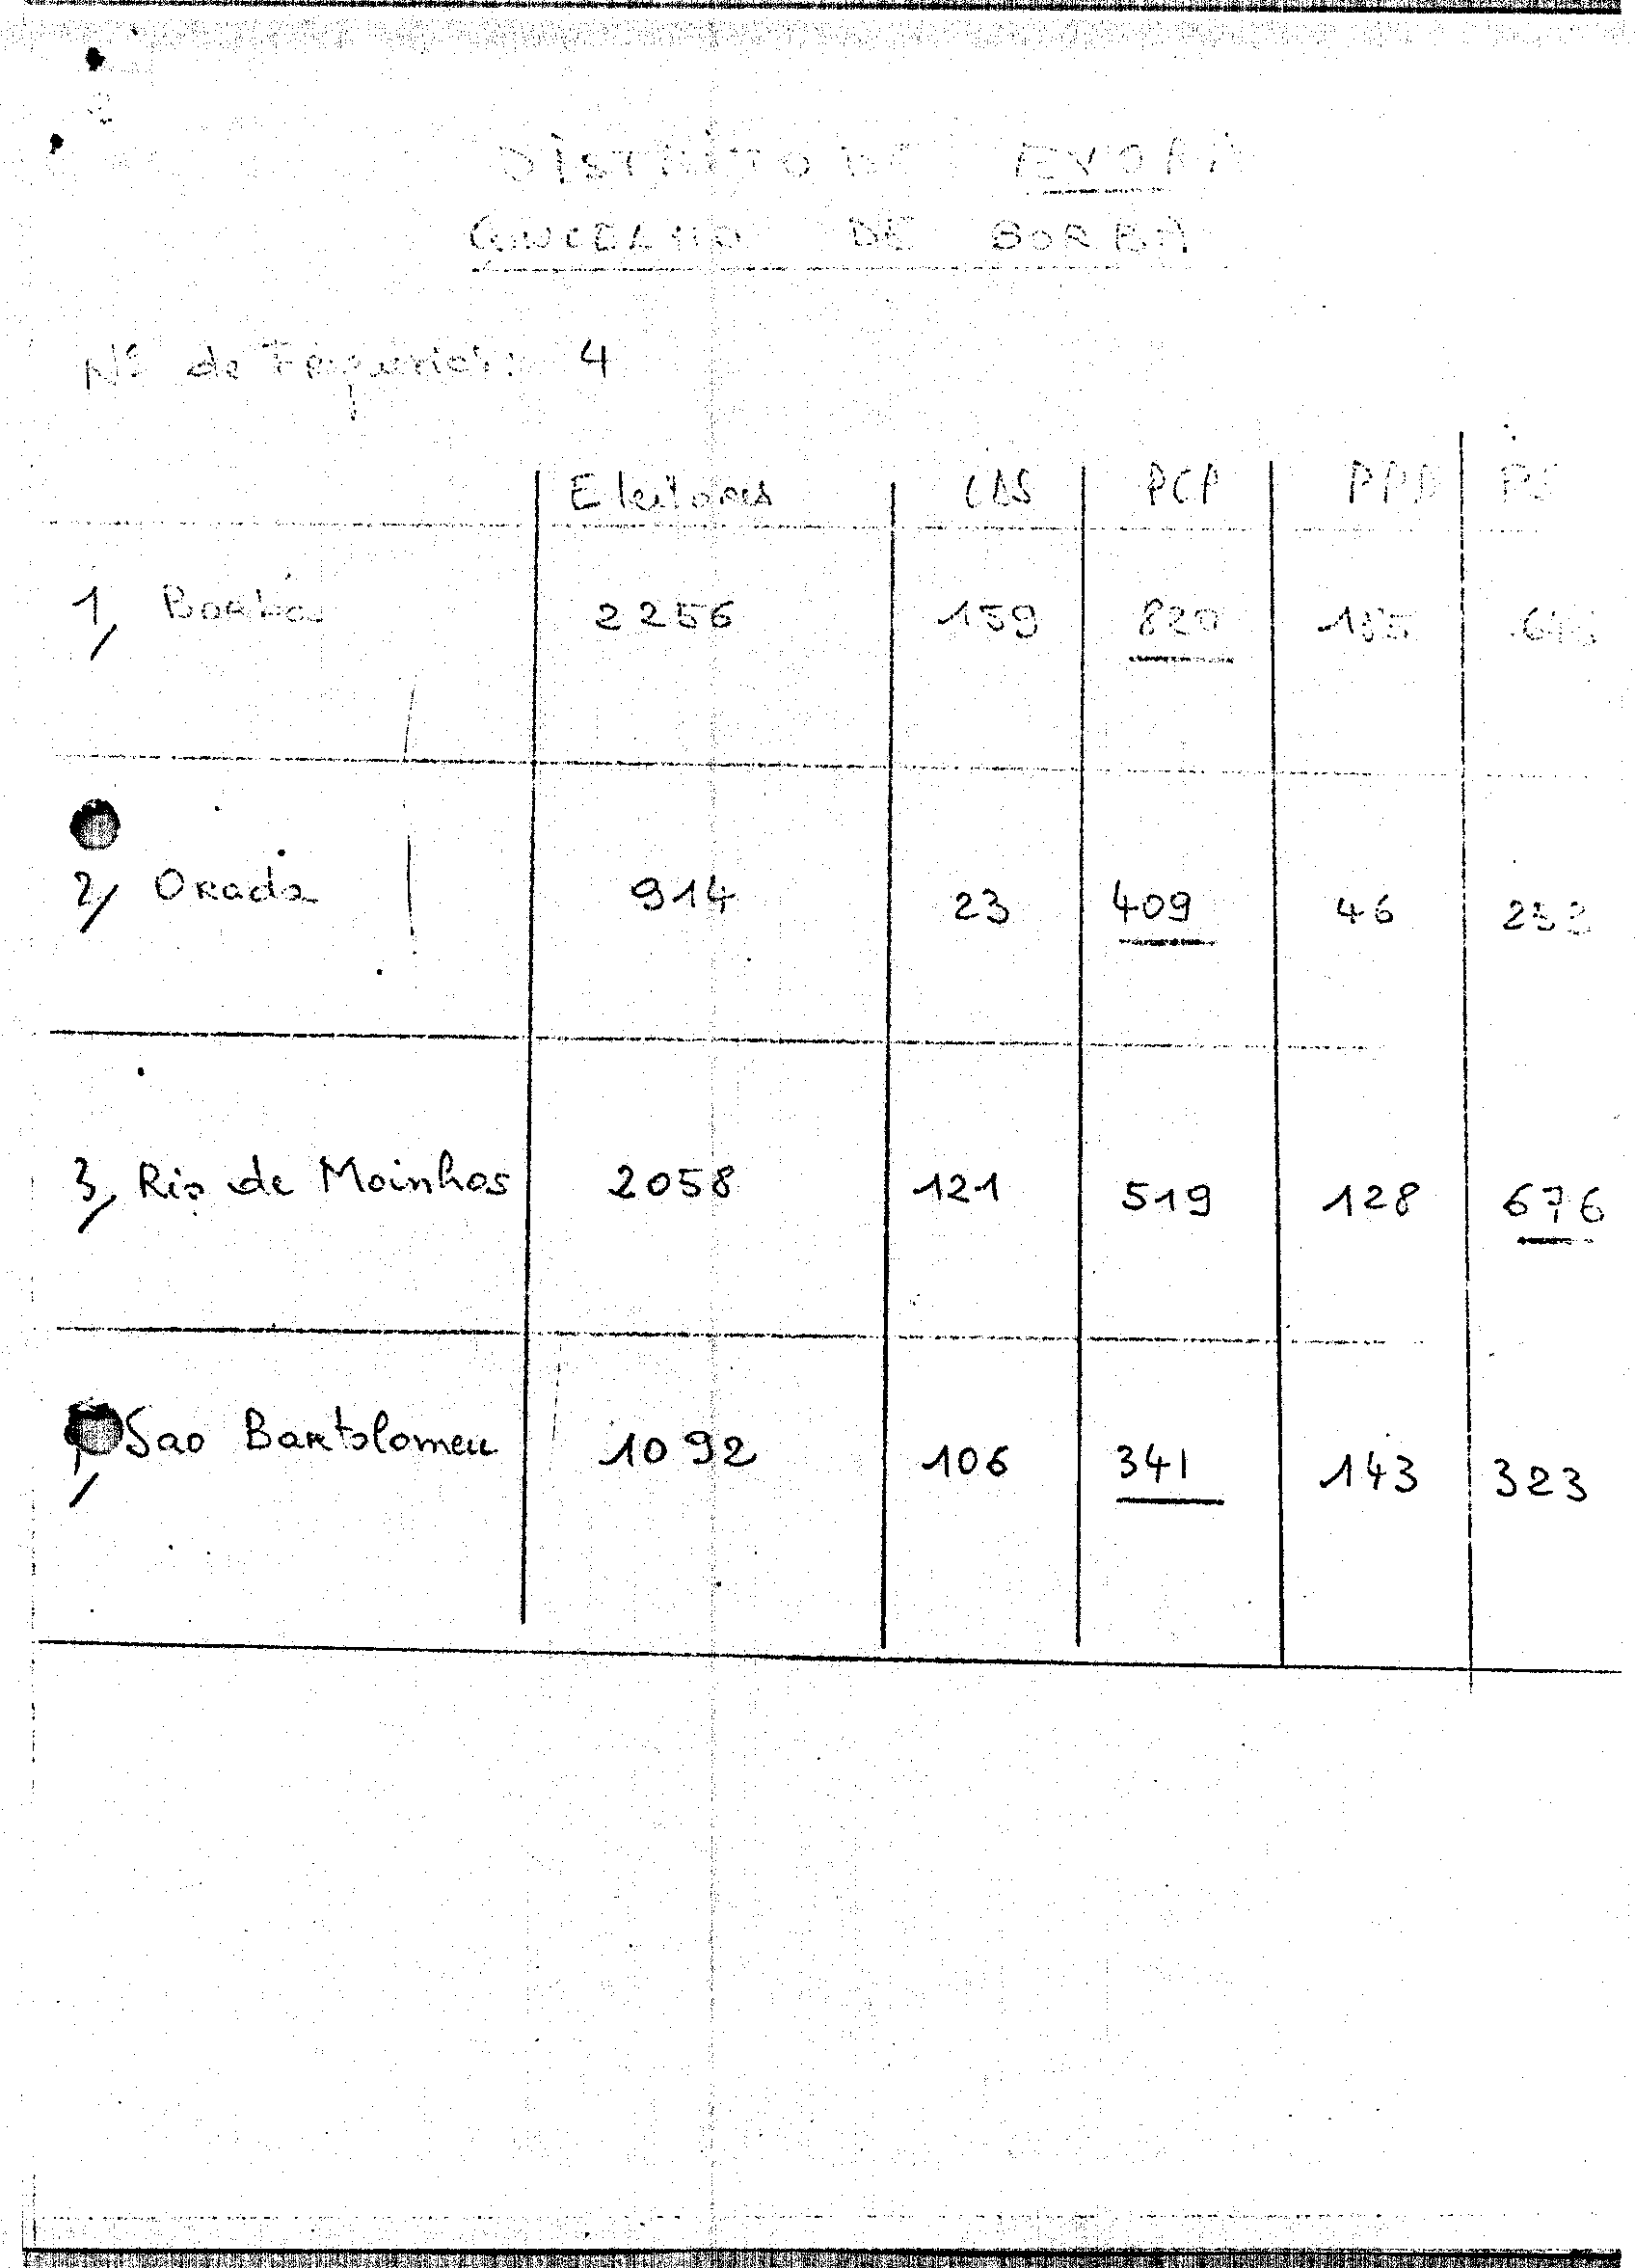 DISTRITO DE EVORA
CONCELHO DE BORBA
Nº de Freguesias: 4
Eleitores CDS PCP PPD PS
1, Borba 2256 159 820
2, Orada 914 23 409 46
3, Rio de Moinhos 2058 121 519 128 676
Sao Bartolomeu 1092 106 341 143 323